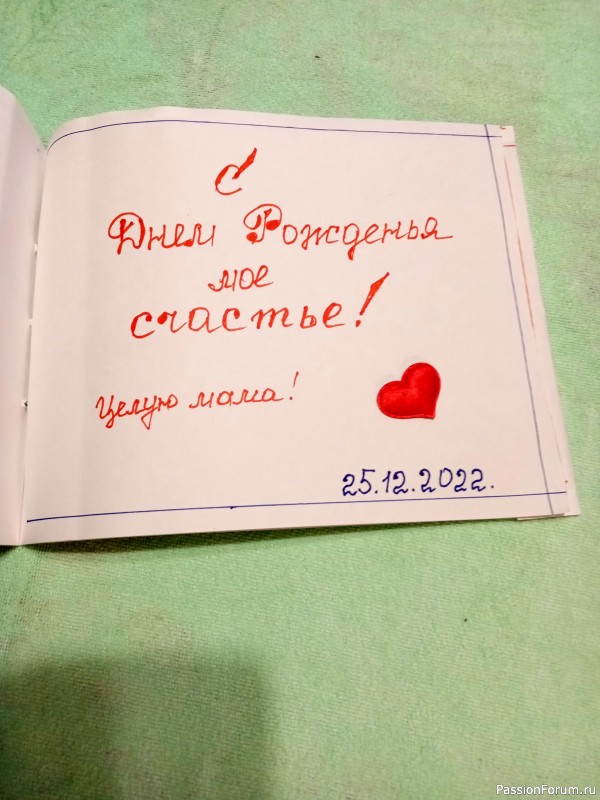 С
Днем Рожденья
мое
счастье!
Целую мама!
25.12.2022.
PassionForum.ru